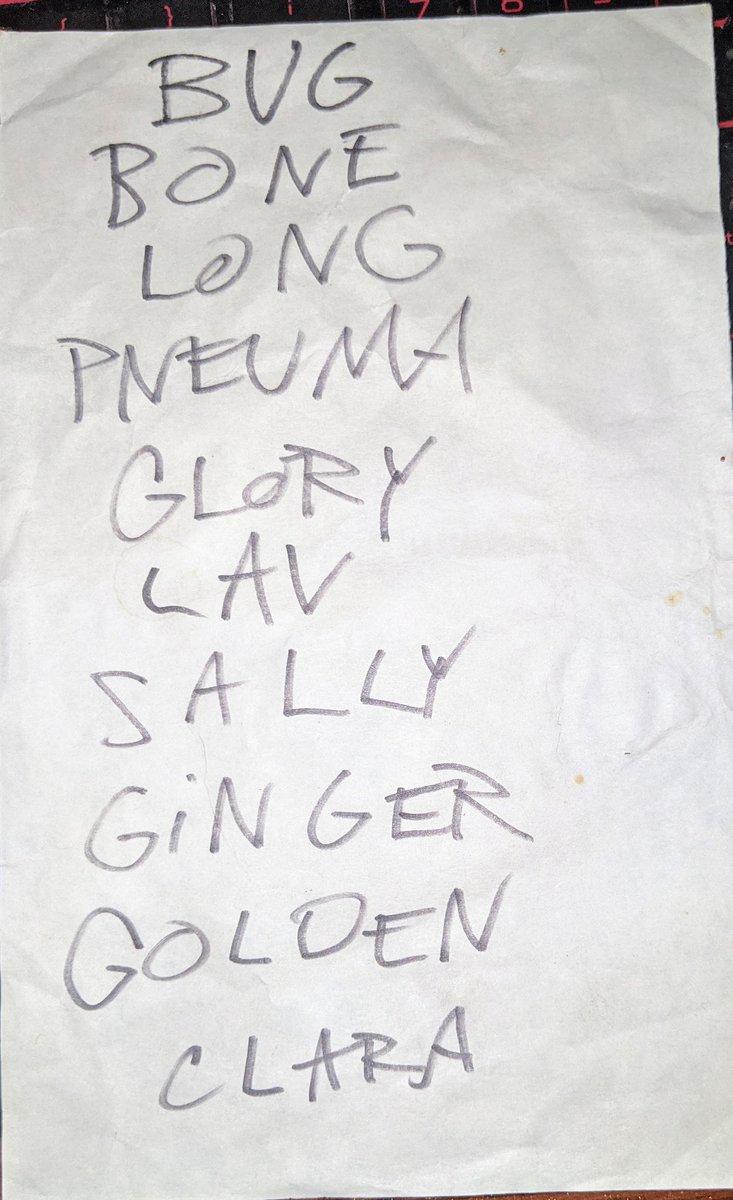 BUG
BONE
LONG
PNEUMA
GLORY
LAV
SALLY
GiNGER
GOLDEN
CLARA